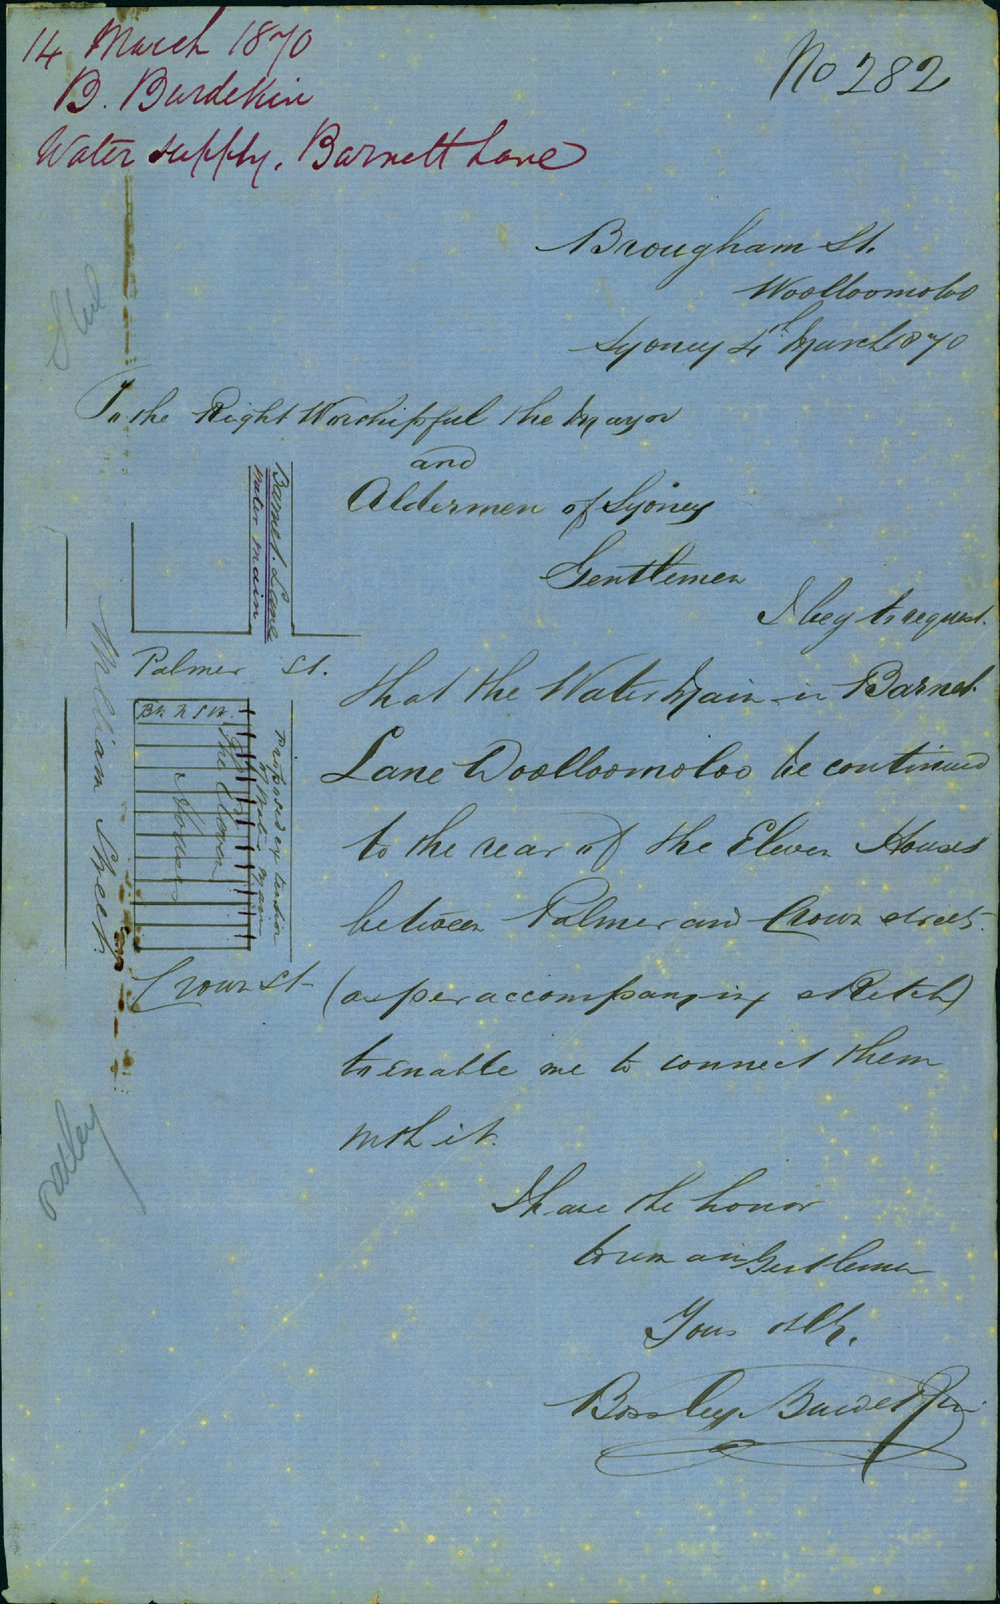 14 March 1870
B. Burdekin
Water supply, Barnett Lane
No 282
Brougham St.
Woolloomoloo
Sydney 4th March 1870
To the Right Worshipful the Mayor
and
Aldermen of Sydney
Gentlemen
I beg to request
that the Water Main in Barnet
Lane Woolloomoloo be continued
to the rear of the Eleven Houses
between Palmer and Crown streets
(as per accompanying sketch)
to enable me to connect them
with it.
I have the honor
to remain Gentlemen
Your
Burdekin
Barnet Lane
Water main
Palmer St.
William Street
proposed extension
of Water Main
Eleven
Houses
Crown St